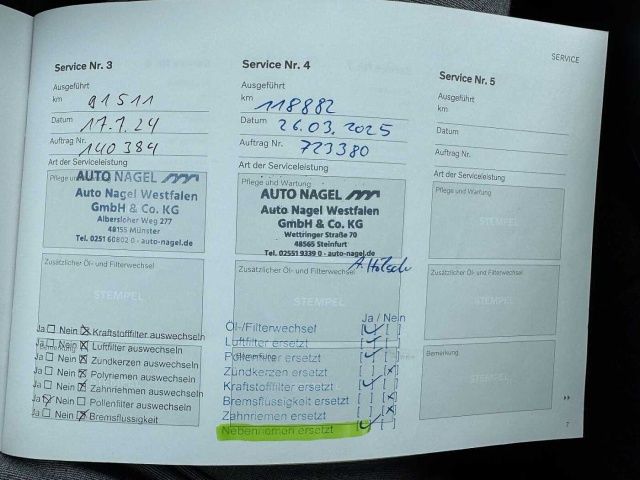 SERVICE
Service Nr. 3
Ausgeführt
km 91511
Datum 17.1.24
Auftrag Nr. 140384
Art der Serviceleistung
Pflege und
AUTO NAGEL
Auto Nagel Westfalen
GmbH & Co. KG
Albersloher Weg 277
48155 Münster
Tel. 0251 60802 0 - auto-nagel.de
Zusätzlicher Öl- und Filterwechsel
STEMPEL
Ja ☐ Nein ☒ Kraftstofffilter auswechseln
Ja ☐ Nein ☒ Luftfilter auswechseln
Bemerkung
Ja ☐ Nein ☒ Zündkerzen auswechseln
Ja ☐ Nein ☒ Polyriemen auswechseln
Ja ☐ Nein ☒ Zahnriehmen auswechseln
Ja ☒ Nein ☐ Pollenfilter auswechseln
Ja ☐ Nein ☒ Bremsflüssigkeit
Service Nr. 4
Ausgeführt
km 118882
Datum 26.03.2025
Auftrag Nr. 723380
Art der Serviceleistung
Pflege und Wartung
AUTO NAGEL
Auto Nagel Westfalen
GmbH & Co. KG
Wettringer Straße 70
48565 Steinfurt
Tel. 02551 9339 0 - auto-nagel.de
Zusätzlicher Öl- und Filterwechsel
STEMPEL
Ja / Nein
Öl-/Filterwechsel
Luftfilter ersetzt
Pollenfilter ersetzt
Bemerkung
Zündkerzen ersetzt
Kraftstofffilter ersetzt
Bremsflüssigkeit ersetzt
Zahnriemen ersetzt
Nebenriemen ersetzt
Service Nr. 5
Ausgeführt
km
Datum
Auftrag Nr.
Art der Serviceleistung
Pflege und Wartung
STEMPEL
Zusätzlicher Öl- und Filterwechsel
STEMPEL
Bemerkung
STEMPEL
7